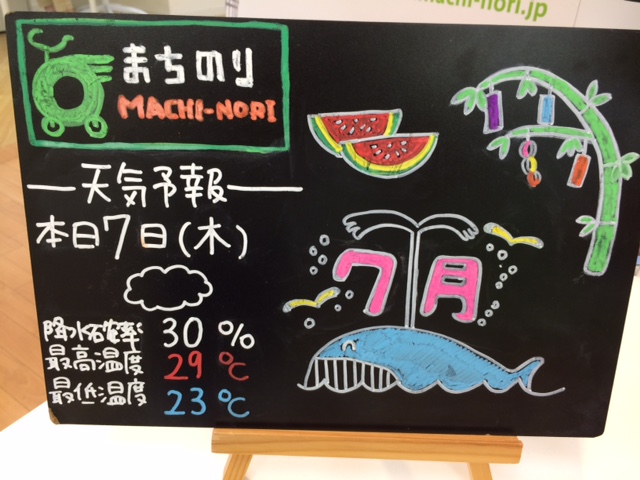 machi-nori.jp
まちのり
MACHI-NORI
天気予報
本日7日(木)
降水確率 30%
最高温度 29℃
最低温度 23℃
7月